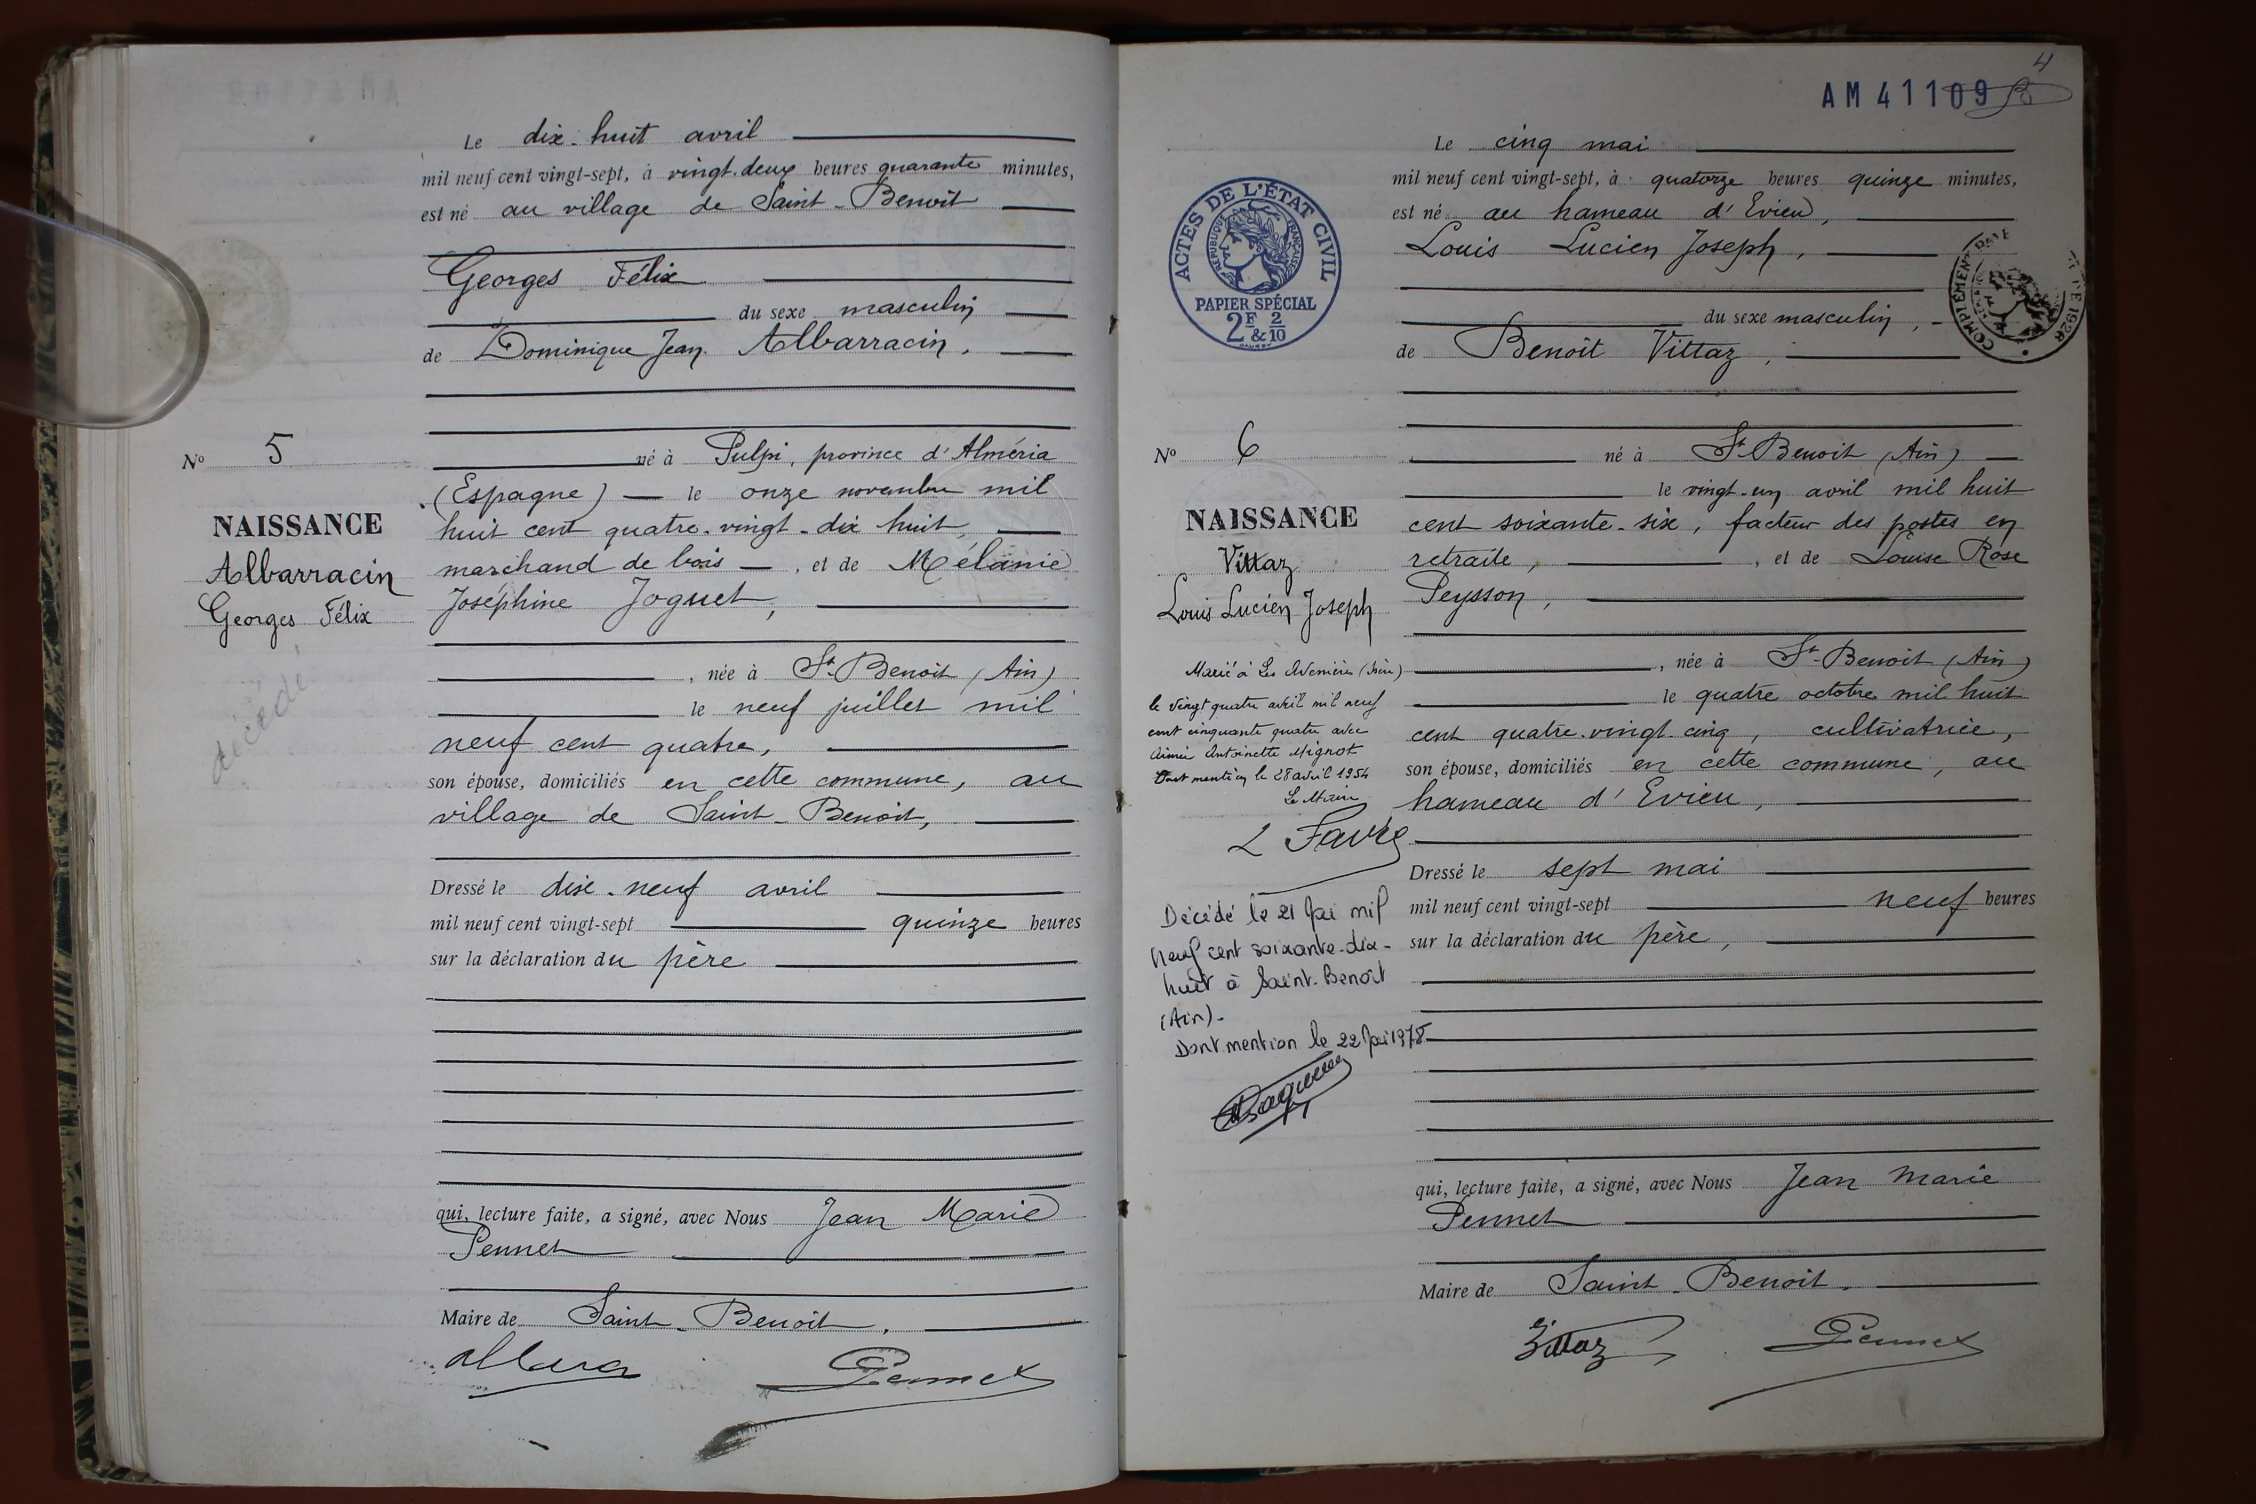 Le dix-huit avril
mil neuf cent vingt-sept, à vingt-deux heures quarante minutes,
est né au village de Saint-Benoît
Georges Félix
du sexe masculin
de Dominique Jean Albarracin,
né à Pulpi, province d'Alméria
(Espagne) le onze novembre mil
huit cent quatre-vingt-dix huit,
marchand de bois, et de Mélanie
Joséphine Joguet,
, née à St-Benoit (Ain)
le neuf juillet mil
neuf cent quatre,
son épouse, domiciliés en cette commune, au
village de Saint-Benoit,
Dressé le dix-neuf avril
mil neuf cent vingt-sept quinze heures
sur la déclaration du père
qui, lecture faite, a signé, avec Nous Jean Marie
Pennet
Maire de Saint-Benoit.
Pennet
No 5
NAISSANCE
Albarracin
Georges Félix
décédé
4
AM 41109
Le cinq mai
mil neuf cent vingt-sept, à quatorze heures quinze minutes,
est né au hameau d'Evieu,
Louis Lucien Joseph,
du sexe masculin,
de Benoît Vittaz,
né à St-Benoit (Ain)
le vingt-un avril mil huit
cent soixante-six, facteur des postes en
retraite, , et de Louise Rose
Peysson,
, née à St-Benoit (Ain)
le quatre octobre mil huit
cent quatre-vingt cinq, cultivatrice,
son épouse, domiciliés en cette commune, au
hameau d'Evieu,
Dressé le sept mai
mil neuf cent vingt-sept neuf heures
sur la déclaration du père,
qui, lecture faite, a signé, avec Nous Jean Marie
Pennet
Maire de Saint-Benoit.
Vittaz Pennet
ACTES DE L'ÉTAT CIVIL
RÉPUBLIQUE FRANÇAISE
PAPIER SPÉCIAL
2F & 2/10
COMPLÉMENT
DE 1926
No 6
NAISSANCE
Vittaz
Louis Lucien Joseph
Marié à Les Avenières (Isère)
le vingt quatre avril mil neuf
cent cinquante quatre avec
Aimée Antoinette Mignot
Dont mention le 28 avril 1954
Le Maire
L Favre
Décédé le 21 Mai mil
neuf cent soixante-dix-
huit à Saint-Benoît
(Ain).
Dont mention le 22 Mai 1978